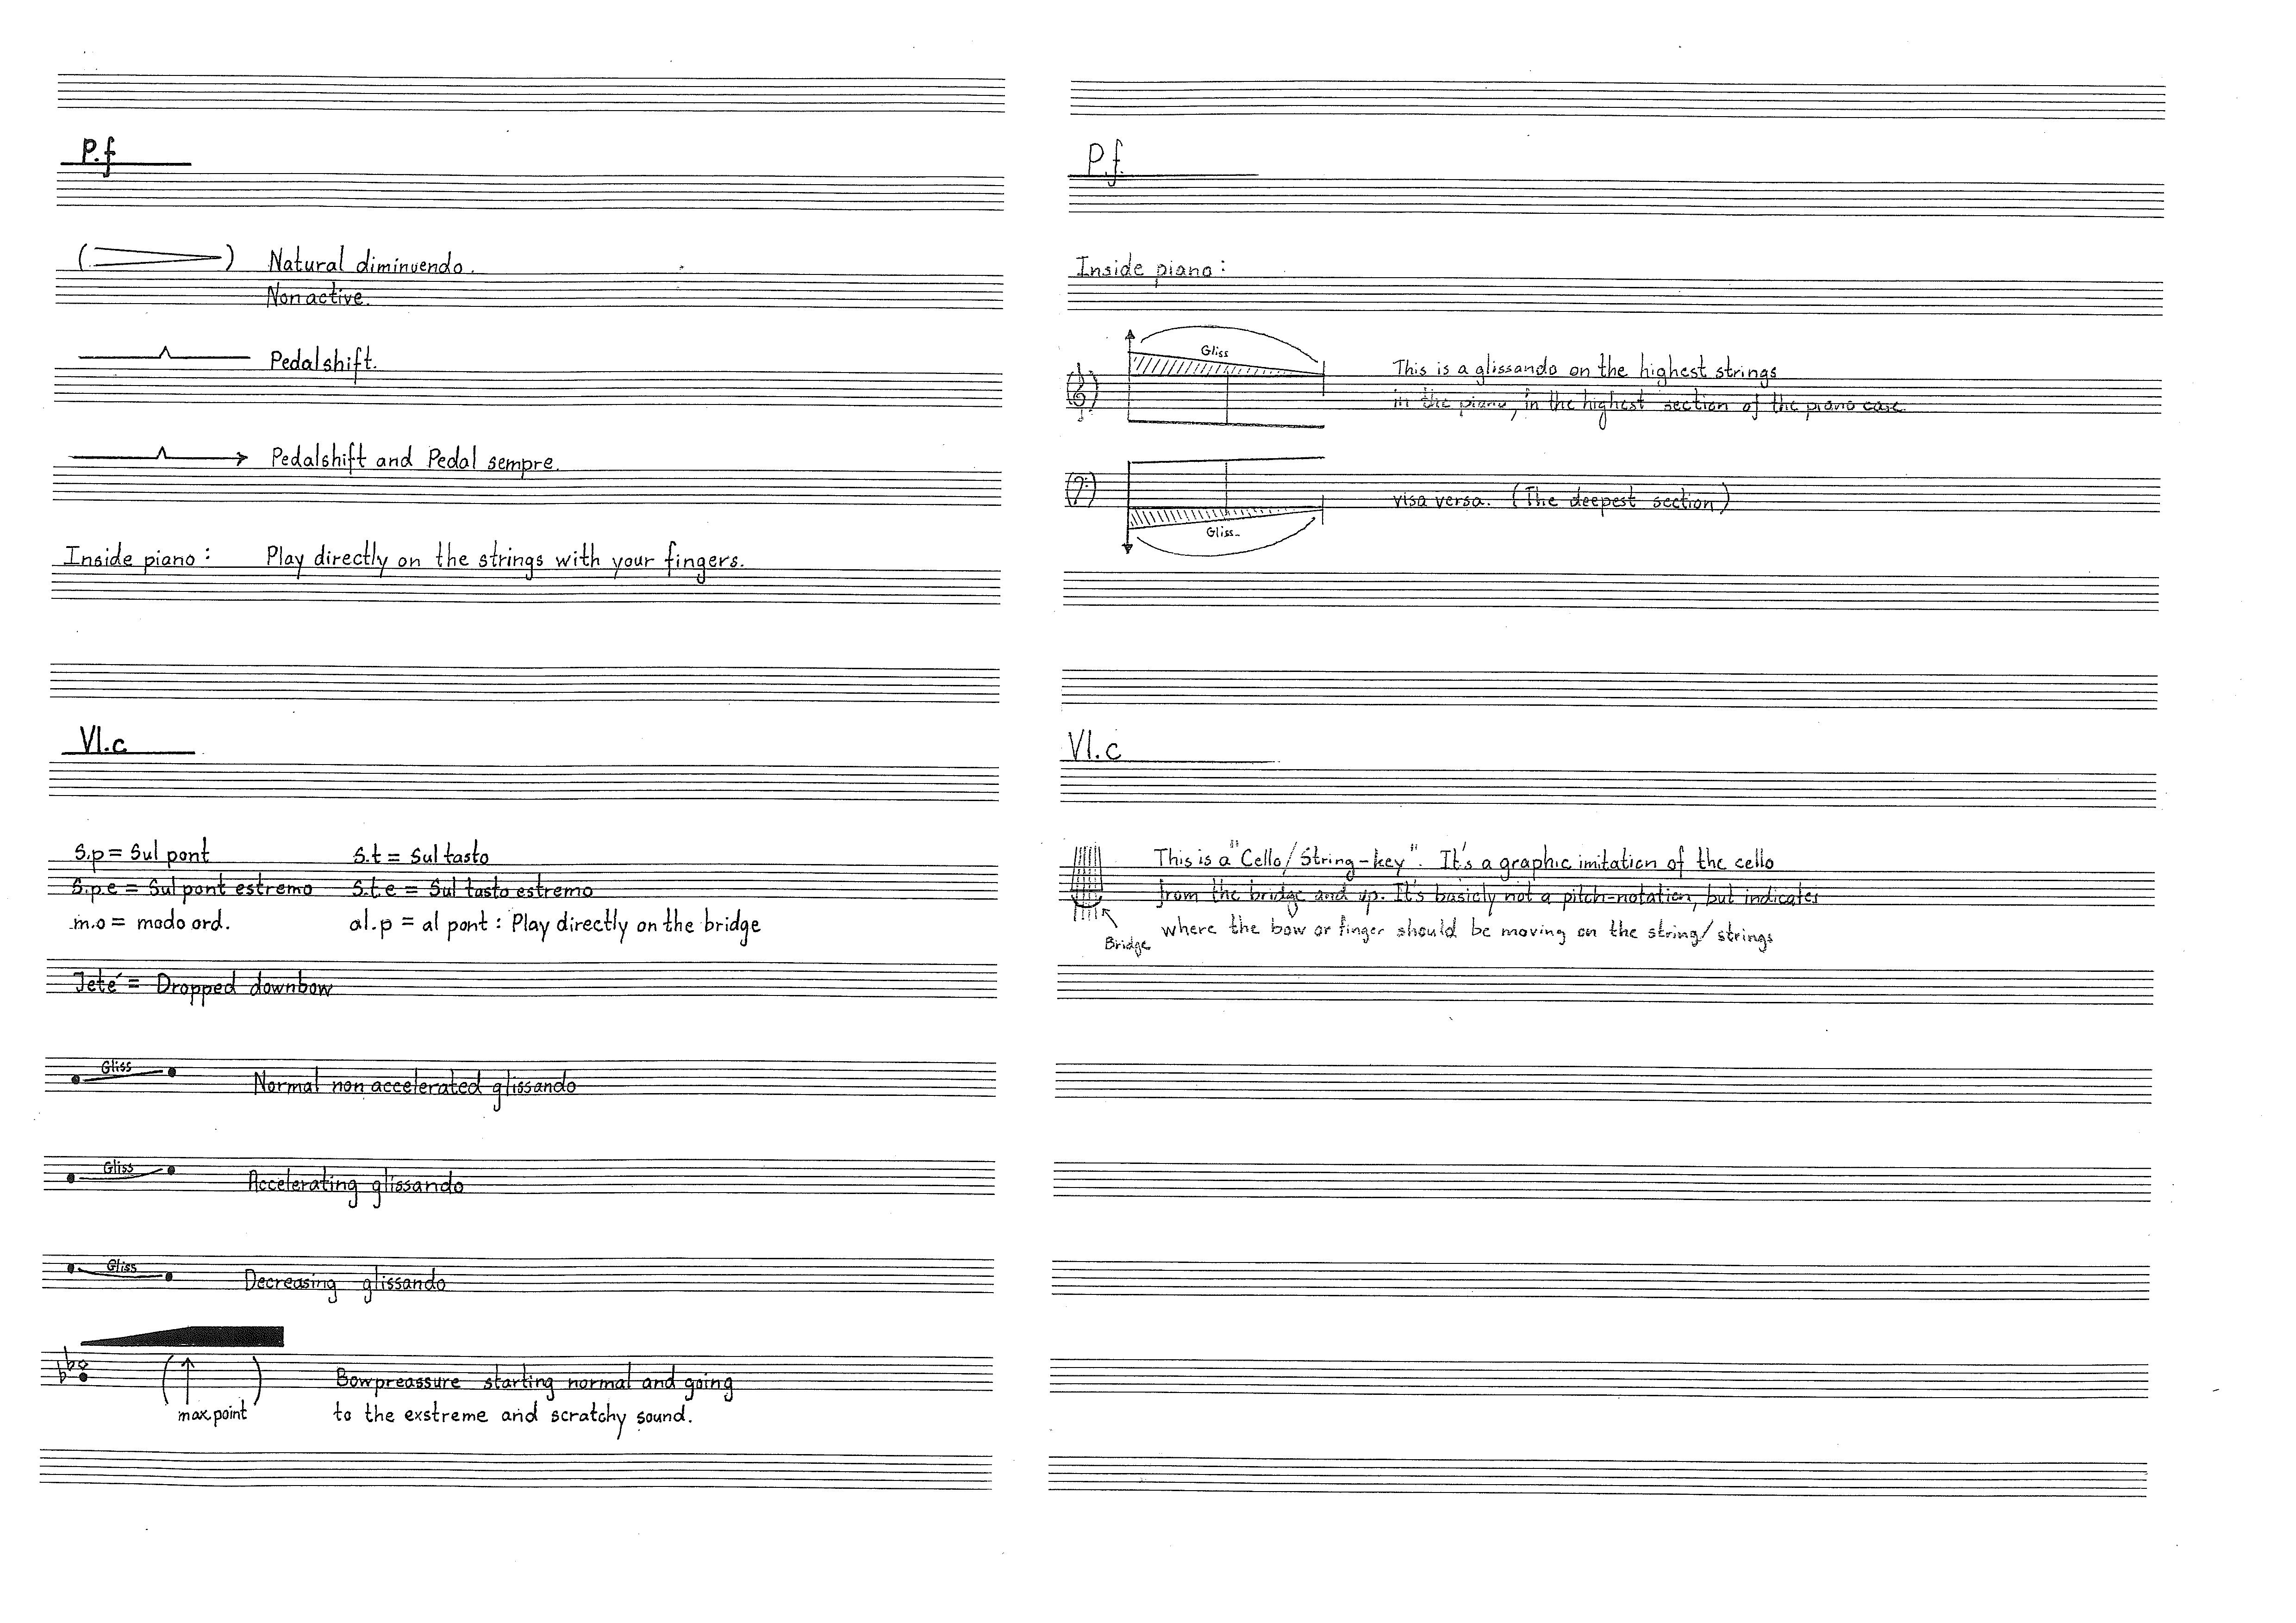 P.f
Natural diminuendo.
Non active.
Pedalshift.
Pedalshift and Pedal sempre.
Inside piano: Play directly on the strings with your fingers.
Vl.c
S.p = Sul pont S.t = Sul tasto
S.p.e = Sul pont estremo S.t.e = Sul tasto estremo
m.o = modo ord. al.p = al pont: Play directly on the bridge
Jeté = Dropped downbow
Gliss
Normal non accelerated glissando
Gliss
Accelerating glissando
Gliss
Decreasing glissando
Bowpreassure starting normal and going
max point
to the exstreme and scratchy sound.
P.f.
Inside piano:
Gliss
This is a glissando on the highest strings
in the piano, in the highest section of the piano case
visa versa. (The deepest section)
Gliss
Vl.c
This is a "Cello/String-key". It's a graphic imitation of the cello
from the bridge and up. It's basicly not a pitch-notation, but indicates
where the bow or finger should be moving on the string/strings
Bridge